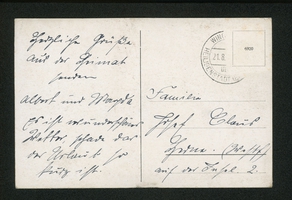 Herzliche Grüße
aus der Heimat
senden
Albert und Magda
Es ist wunderschönes
Wetter schade das
der Urlaub so
kurz ist.
Familie
Josef Claus
auf der Insel 2